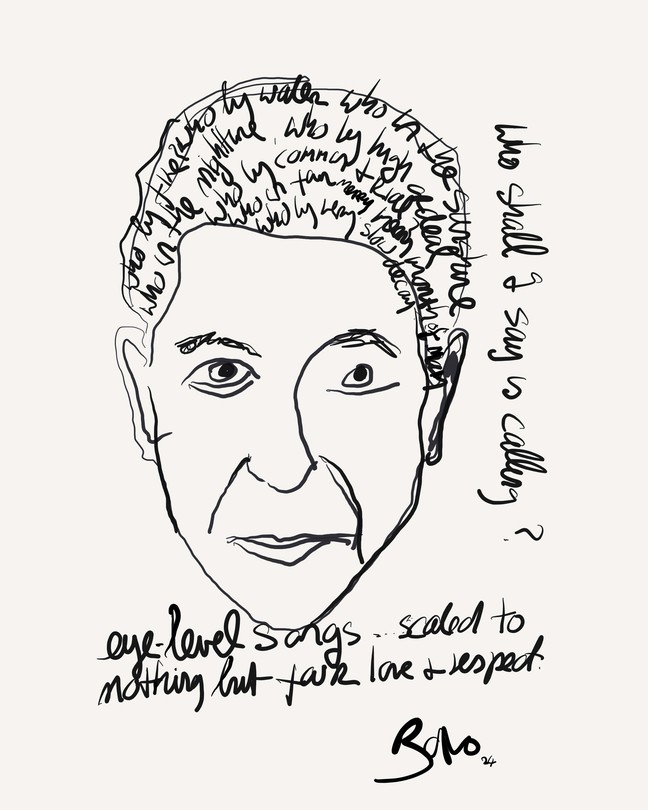 who by fire who by water who in the sunshine
who in the nighttime who by high ordeal
who by common trial
who by very slow decay
merry merry month of may
who shall I say is calling?
eye-level songs... scaled to
nothing but fark love + respect.
Bono 24